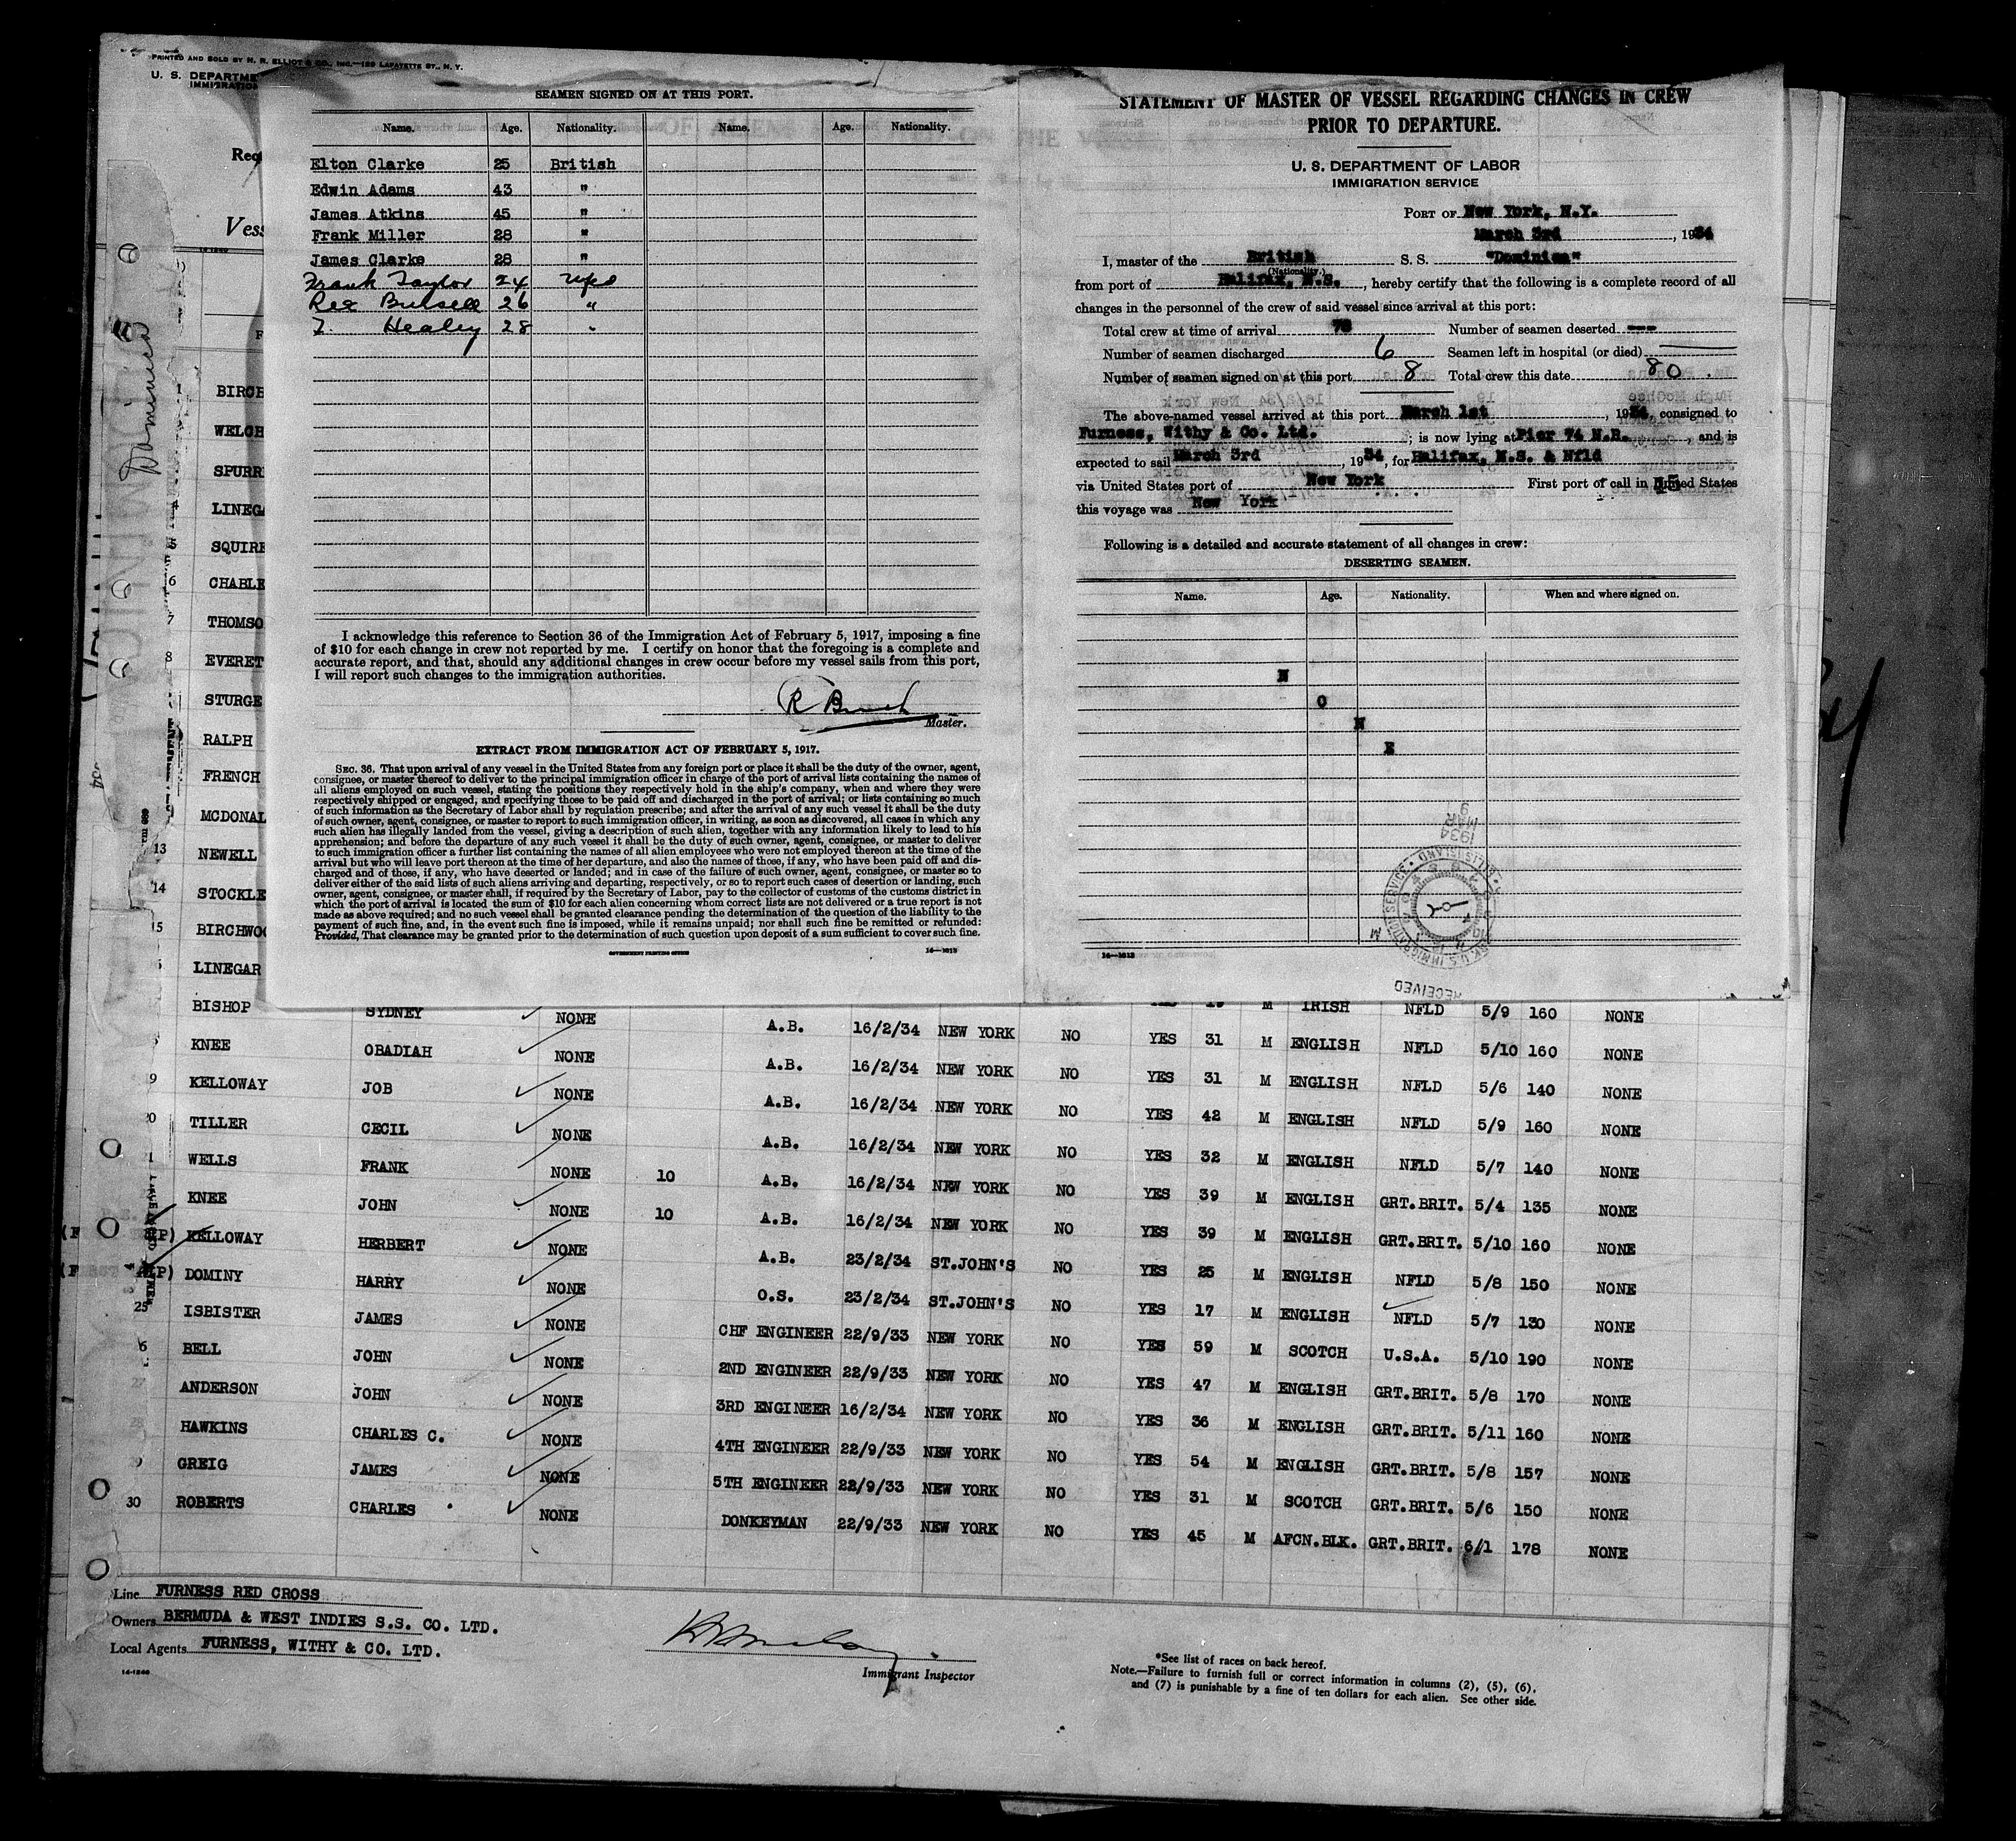 PRINTED AND SOLD BY H. R. ELLIOT & CO., INC.—129 LAFAYETTE ST., N. Y.
U. S. DEPARTME
IMMIGRATION
Req
Vess
Dominica
SEAMEN SIGNED ON AT THIS PORT.
Name. Age. Nationality. Name. Age. Nationality.
Elton Clarke 25 British
Edwin Adams 43 "
James Atkins 45 "
Frank Miller 28 "
James Clarke 28 "
Frank Taylor 24 Nfld
Rex Bussell 26 "
Healey 28 "
I acknowledge this reference to Section 36 of the Immigration Act of February 5, 1917, imposing a fine
of $10 for each change in crew not reported by me. I certify on honor that the foregoing is a complete and
accurate report, and that, should any additional changes in crew occur before my vessel sails from this port,
I will report such changes to the immigration authorities.
Master.
EXTRACT FROM IMMIGRATION ACT OF FEBRUARY 5, 1917.
SEC. 36. That upon arrival of any vessel in the United States from any foreign port or place it shall be the duty of the owner, agent,
consignee, or master thereof to deliver to the principal immigration officer in charge of the port of arrival lists containing the names of
all aliens employed on such vessel, stating the positions they respectively hold in the ship's company, when and where they were
respectively shipped or engaged, and specifying those to be paid off and discharged in the port of arrival; or lists containing so much
of such information as the Secretary of Labor shall by regulation prescribe; and after the arrival of any such vessel it shall be the duty
of such owner, agent, consignee, or master to report to such immigration officer, in writing, as soon as discovered, all cases in which any
such alien has illegally landed from the vessel, giving a description of such alien, together with any information likely to lead to his
apprehension; and before the departure of any such vessel it shall be the duty of such owner, agent, consignee, or master to deliver
to such immigration officer a further list containing the names of all alien employees who were not employed thereon at the time of the
arrival but who will leave port thereon at the time of her departure, and also the names of those, if any, who have been paid off and dis-
charged and of those, if any, who have deserted or landed; and in case of the failure of such owner, agent, consignee, or master so to
deliver either of the said lists of such aliens arriving and departing, respectively, or so to report such cases of desertion or landing, such
owner, agent, consignee, or master shall, if required by the Secretary of Labor, pay to the collector of customs of the customs district in
which the port of arrival is located the sum of $10 for each alien concerning whom correct lists are not delivered or a true report is not
made as above required; and no such vessel shall be granted clearance pending the determination of the question of the liability to the
payment of such fine, and, in the event such fine is imposed, while it remains unpaid; nor shall such fine be remitted or refunded:
Provided, That clearance may be granted prior to the determination of such question upon deposit of a sum sufficient to cover such fine.
GOVERNMENT PRINTING OFFICE 14—1213
STATEMENT OF MASTER OF VESSEL REGARDING CHANGES IN CREW
PRIOR TO DEPARTURE.
U. S. DEPARTMENT OF LABOR
IMMIGRATION SERVICE
PORT OF New York, N.Y.
March 3rd, 1934
I, master of the British S. S. "Dominica"
(Nationality.)
from port of Halifax, N.S., hereby certify that the following is a complete record of all
changes in the personnel of the crew of said vessel since arrival at this port:
Total crew at time of arrival 78 Number of seamen deserted ---
Number of seamen discharged 6 Seamen left in hospital (or died)
Number of seamen signed on at this port 8 Total crew this date 80
The above-named vessel arrived at this port March 1st, 1934, consigned to
Furness, Withy & Co. Ltd.; is now lying at Pier 74 N.R., and is
expected to sail March 3rd, 1934, for Halifax, N.S. & Nfld
via United States port of New York First port of call in United States
this voyage was New York
Following is a detailed and accurate statement of all changes in crew:
DESERTING SEAMEN.
Name. Age. Nationality. When and where signed on.
N
O
N
E
1934
MAR
9
RECEIVED
14—1213
BIRCH
WELCH
SPURR
4 LINEGA
5 SQUIRE
6 CHARLE
7 THOMSO
8 EVERET
STURGE
RALPH
FRENCH
MCDONAL
13 NEWELL
14 STOCKLE
15 BIRCHWOO
LINEGAR
BISHOP SYDNEY NONE A.B. 16/2/34 NEW YORK NO YES 19 M IRISH NFLD 5/9 160 NONE
KNEE OBADIAH NONE A.B. 16/2/34 NEW YORK NO YES 31 M ENGLISH NFLD 5/10 160 NONE
9 KELLOWAY JOB NONE A.B. 16/2/34 NEW YORK NO YES 31 M ENGLISH NFLD 5/6 140 NONE
20 TILLER CECIL NONE A.B. 16/2/34 NEW YORK NO YES 42 M ENGLISH NFLD 5/9 160 NONE
1 WELLS FRANK NONE 10 A.B. 16/2/34 NEW YORK NO YES 32 M ENGLISH NFLD 5/7 140 NONE
KNEE JOHN NONE 10 A.B. 16/2/34 NEW YORK NO YES 39 M ENGLISH GRT.BRIT. 5/4 135 NONE
KELLOWAY HERBERT NONE A.B. 23/2/34 ST.JOHN'S NO YES 39 M ENGLISH GRT.BRIT. 5/10 160 NONE
DOMINY HARRY NONE O.S. 23/2/34 ST.JOHN'S NO YES 25 M ENGLISH NFLD 5/8 150 NONE
25 ISBISTER JAMES NONE CHF ENGINEER 22/9/33 NEW YORK NO YES 17 M ENGLISH NFLD 5/7 130 NONE
6 BELL JOHN NONE 2ND ENGINEER 22/9/33 NEW YORK NO YES 59 M SCOTCH U.S.A. 5/10 190 NONE
27 ANDERSON JOHN NONE 3RD ENGINEER 16/2/34 NEW YORK NO YES 47 M ENGLISH GRT.BRIT. 5/8 170 NONE
28 HAWKINS CHARLES C. NONE 4TH ENGINEER 22/9/33 NEW YORK NO YES 36 M ENGLISH GRT.BRIT. 5/11 160 NONE
9 GREIG JAMES NONE 5TH ENGINEER 22/9/33 NEW YORK NO YES 54 M ENGLISH GRT.BRIT. 5/8 157 NONE
30 ROBERTS CHARLES NONE DONKEYMAN 22/9/33 NEW YORK NO YES 31 M SCOTCH GRT.BRIT. 5/6 150 NONE
YES 45 M AFCN.BLK. GRT.BRIT. 6/1 178 NONE
Line FURNESS RED CROSS
Owners BERMUDA & WEST INDIES S.S. CO. LTD.
Local Agents FURNESS, WITHY & CO. LTD.
14-1240
Immigrant Inspector
*See list of races on back hereof.
Note.—Failure to furnish full or correct information in columns (2), (5), (6),
and (7) is punishable by a fine of ten dollars for each alien. See other side.